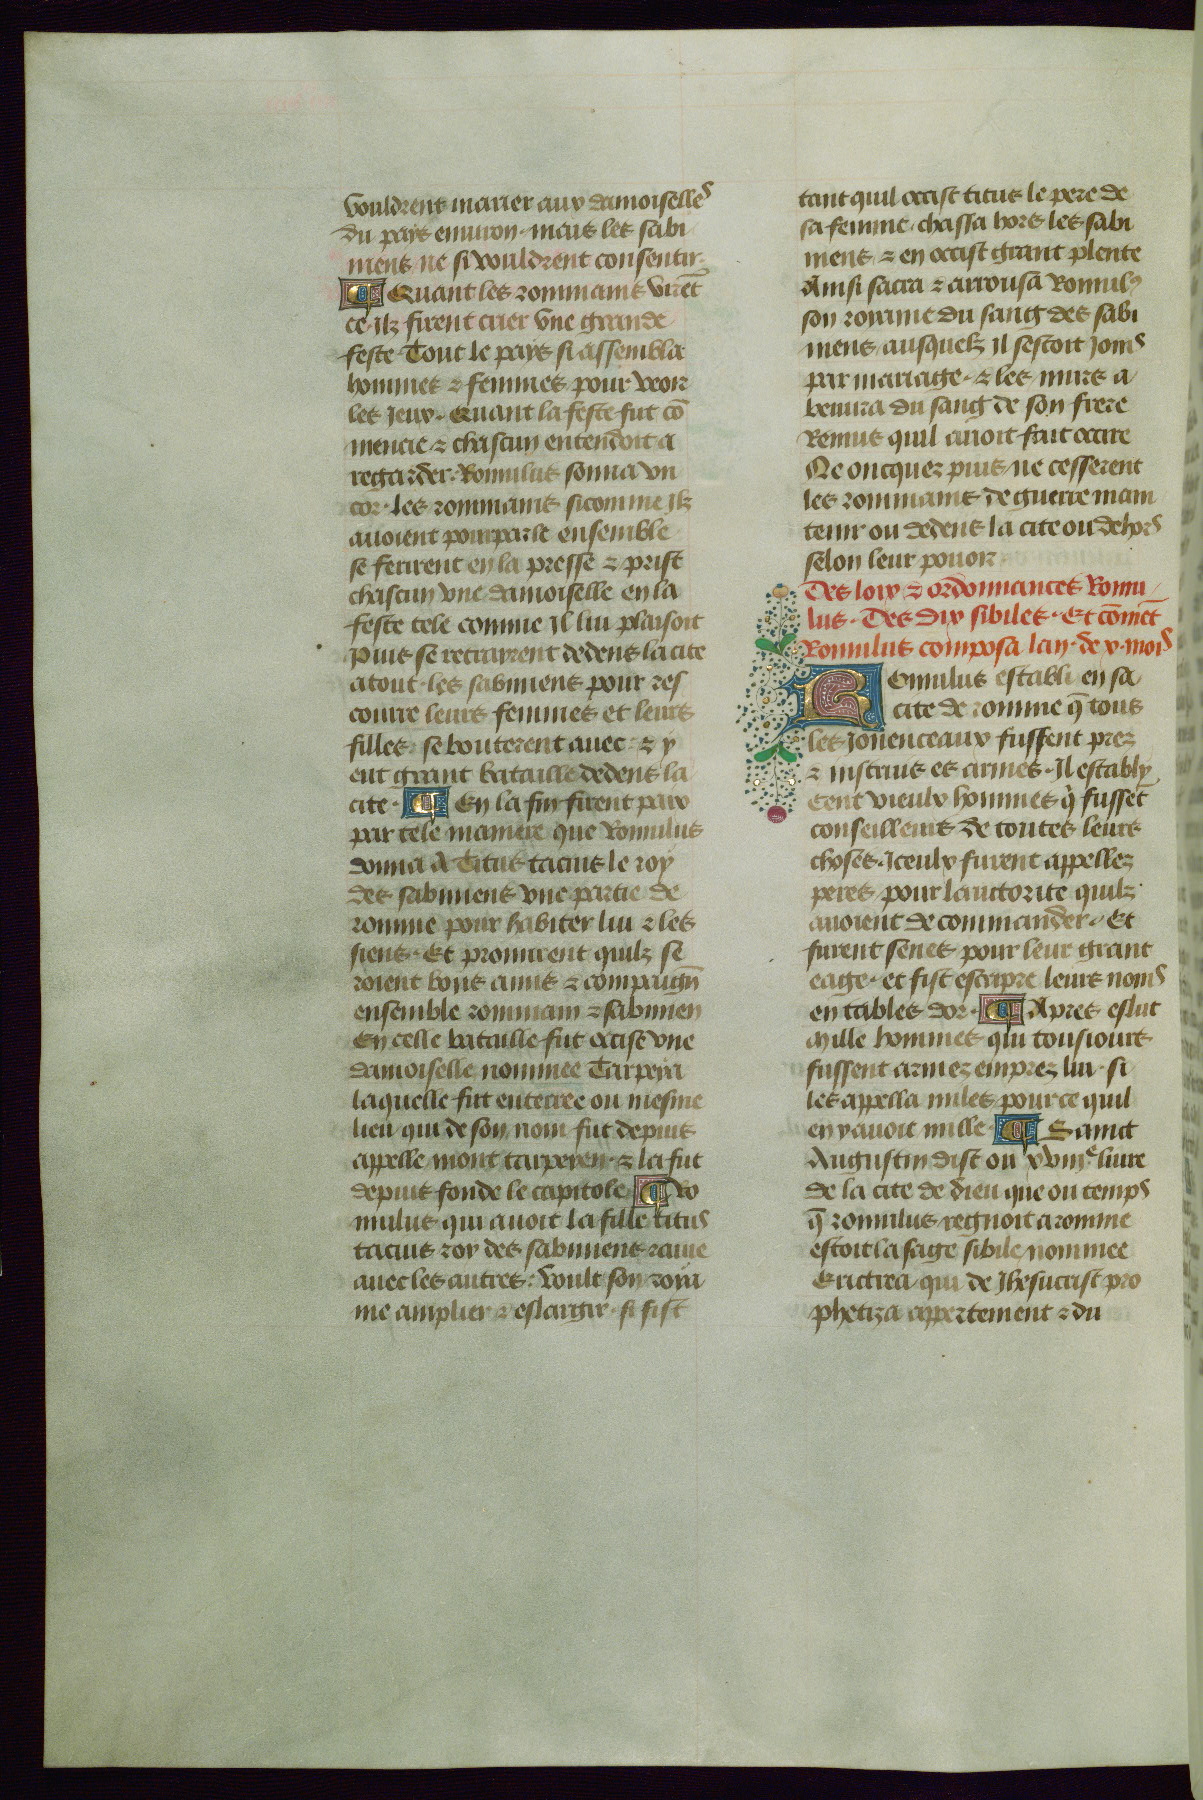 vouldrent marier aux damoiselles
du pays enuiron. mais les sabi
niens ne si vouldrent consentir.
Quant les rommains virēt
ce ilz firent crier vne grande
feste Tout le pays si assembla
hommes & femmes pour veoir
les Jeux. Quant la feste fut cō
mencie & chascun entendoit a
regarder. Romulus sonna vn
cor. les rommains sicomme ilz
auoient pourparle ensemble
se ferirent en la presse & prist
chascun vne damoiselle en la
feste tele comme Il lui plaisoit
Puis se retrayrent dedens la cite
atout. les sabiniens pour res
courre leurs femmes et leurs
filles se bouterent auec & y
eut grant bataille dedens la
cite. En la fin firent paix
par tele maniere que Romulus
donna A Titus tacius le roy
des sabiniens vne partie de
romme pour habiter lui & les
siens. Et promirent quilz se
roient bons amis & compaignō
ensemble rommain & sabinien
En celle bataille fut occise vne
damoiselle nommee Tarpeia
laquelle fut enterree ou mesme
lieu qui de son nom fut depuis
appelle mont tarpeien. & la fut
depuis fonde le capitole Ro
mulus qui auoit la fille titus
tacius roy des sabiniens rauie
auec les autres: voult son roya
me amplier & eslargir. si fist
tant quil occist titus le pere de
sa femme. chassa hors les sabi
niens & en occist grant plente
Ainsi sacra & arrousa Romulꝰ
son royame du sang des sabi
niens ausquelz il sestoit Joins
par mariage. & les murs a
beuura du sang de son frere
Remus quil auoit fait occire
Ne oncques puis ne cesserent
les rommains de guerre main
tenir ou dedens la cite ou dehors
selon leur pouoir
Des loix & ordonnances Romu
lus. Des dix sibiles. Et cōmēt
Romulus composa lan. de x. mois
Romulus establi en sa
cite de romme q̄ tous
les Jouenceaux fussent prez
& instruis es armes. Il establÿ
Cent vieulx hommes q̄ fussēt
conseilleurs de toutes leurs
choses. Iceulx furent appellez
peres pour lauctorite quilz
auoient de commander. Et
furent senes pour leur grant
eage. et fist escripre leurs noms
en tables dor. Apres eslut
Mille hommes qui tousiours
fussent armez emprez lui. si
les appella miles pource quil
en y auoit mille Saint
Augustin dist ou xviiie liure
de la cite de dieu que ou temps
q̄ romulus regnoit a romme
estoit la sage sibile nommee
Erictrea qui de Jhesucrist pro
phetiza appertement & du